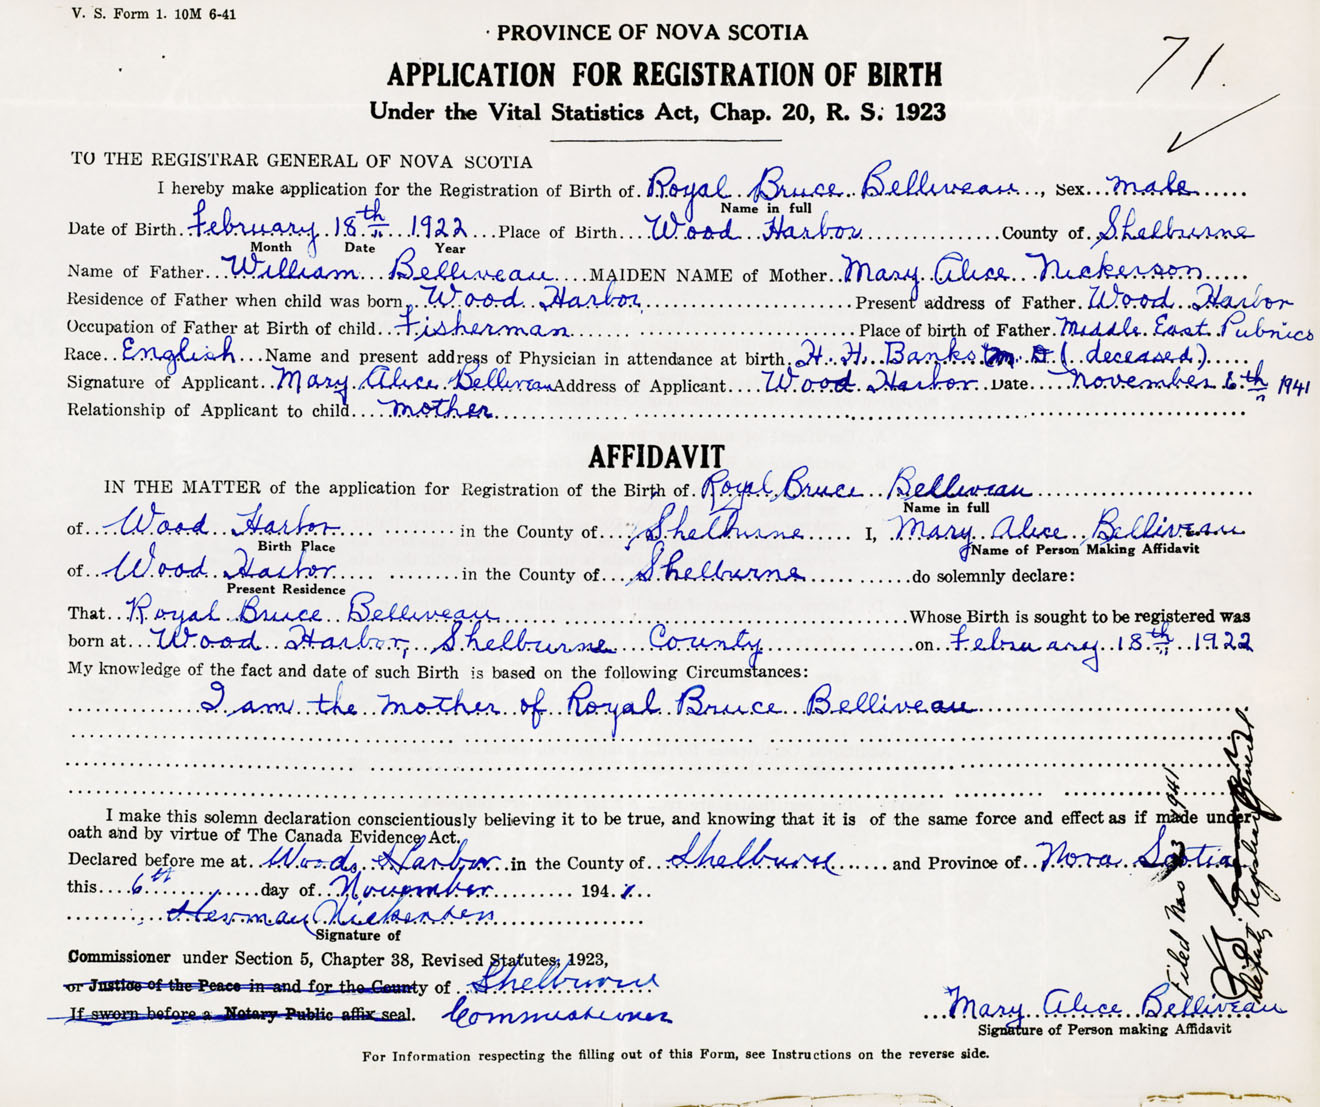 V. S. Form 1. 10M 6-41
PROVINCE OF NOVA SCOTIA
71.
APPLICATION FOR REGISTRATION OF BIRTH
Under the Vital Statistics Act, Chap. 20, R. S. 1923
TO THE REGISTRAR GENERAL OF NOVA SCOTIA
I hereby make application for the Registration of Birth of Royal Bruce Belliveau, Sex male
Name in full
Date of Birth February 18th 1922 Place of Birth Wood Harbor County of Shelburne
Month Date Year
Name of Father William Belliveau MAIDEN NAME of Mother Mary Alice Nickerson
Residence of Father when child was born Wood Harbor Present address of Father Wood Harbor
Occupation of Father at Birth of child Fisherman Place of birth of Father Middle East Pubnico
Race English Name and present address of Physician in attendance at birth H. H. Banks M. D (deceased)
Signature of Applicant Mary Alice Belliveau Address of Applicant Wood Harbor Date November 6th 1941
Relationship of Applicant to child mother
AFFIDAVIT
IN THE MATTER of the application for Registration of the Birth of Royal Bruce Belliveau
Name in full
of Wood Harbor in the County of Shelburne I, Mary Alice Belliveau
Birth Place Name of Person Making Affidavit
of Wood Harbor in the County of Shelburne do solemnly declare:
Present Residence
That Royal Bruce Belliveau Whose Birth is sought to be registered was
born at Wood Harbor, Shelburne County on February 18th 1922
My knowledge of the fact and date of such Birth is based on the following Circumstances:
I am the mother of Royal Bruce Belliveau
I make this solemn declaration conscientiously believing it to be true, and knowing that it is of the same force and effect as if made under
oath and by virtue of The Canada Evidence Act.
Declared before me at Woods Harbor in the County of Shelburne and Province of Nova Scotia
this 6th day of November 1941
Herman Nickerson
Signature of
Commissioner under Section 5, Chapter 38, Revised Statutes, 1923,
or Justice of the Peace in and for the County of Shelburne
If sworn before a Notary Public affix seal. Commissioner
Mary Alice Belliveau
Signature of Person making Affidavit
Filed Nov 1941
Deputy Registrar General
For Information respecting the filling out of this Form, see Instructions on the reverse side.